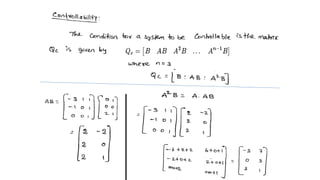 Controllability:
The Condition for a system to be Controllable is the matrix
Qc is given by Qc = [B AB A²B ... Aⁿ⁻¹B]
where n=3
Qc = [B : AB : A²B]
A²B = A. AB
AB = [-3 1 1; -1 0 1; 0 0 1] [0 1; 0 0; 2 1]
= [2 -2; 2 0; 2 1]
= [-3 1 1; -1 0 1; 0 0 1] [2 -2; 2 0; 2 1]